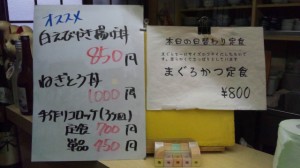 オススメ
白えびかき揚げ丼
850円
ねぎとろ丼
1000円
手作りコロッケ(3ヶ)
定食 700円
単品 450円
本日の日替わり定食
まぐろかつ定食
¥800